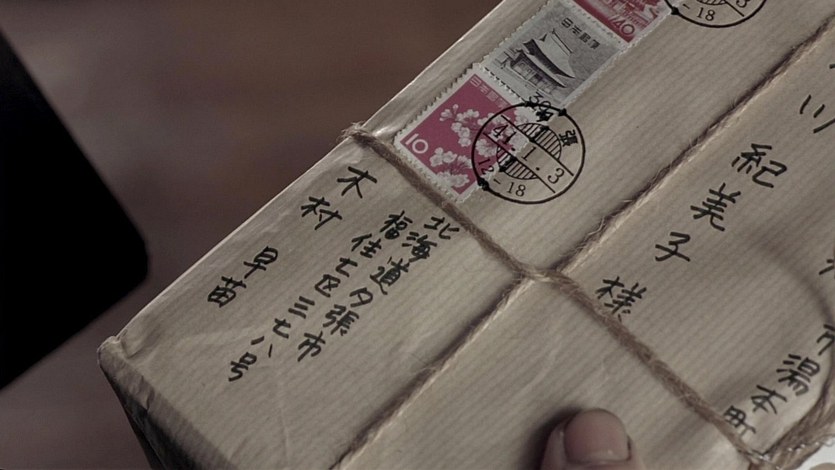 40
日本郵便
日本郵便
10
張
41.1.3
12-18
-18
湯本町
川 紀美子様
北海道夕張市
福住七区三七八号
木村 早苗